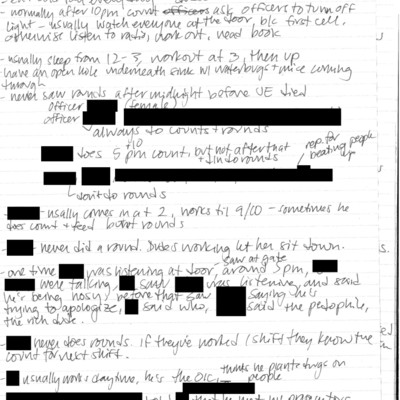 - normally after 10pm count officers ask officers to turn off
light - usually watch everyone at the door, b/c first cell.
otherwise listen to radio, work out, read book
- usually sleep from 12-3, workout at 3, then up
- have an open hole underneath sink w/ waterbugs + mice coming
through
- never saw rounds after midnight before JE died
officer (female)
officer
always do counts + rounds
does 5 pm count, but not after that
+10
+ didn't do rounds
rep. for
beating people
up
don't do rounds
- usually comes in at 2, works til 9/10 - sometimes he
does count + feed but not rounds
- never did a round. Dudes working let her sit down.
saw at gate
- one time was listening at door, around 3pm,
were talking, saw was listening, and said
he's being nosy. before that saw saying he's
trying to apologize, said who, said the pedophile,
the rich dude.
- never does rounds. If they've worked 1 shift they know the
count for next shift.
- usually works daytime, he's the OIC, thinks he plants drugs on
people